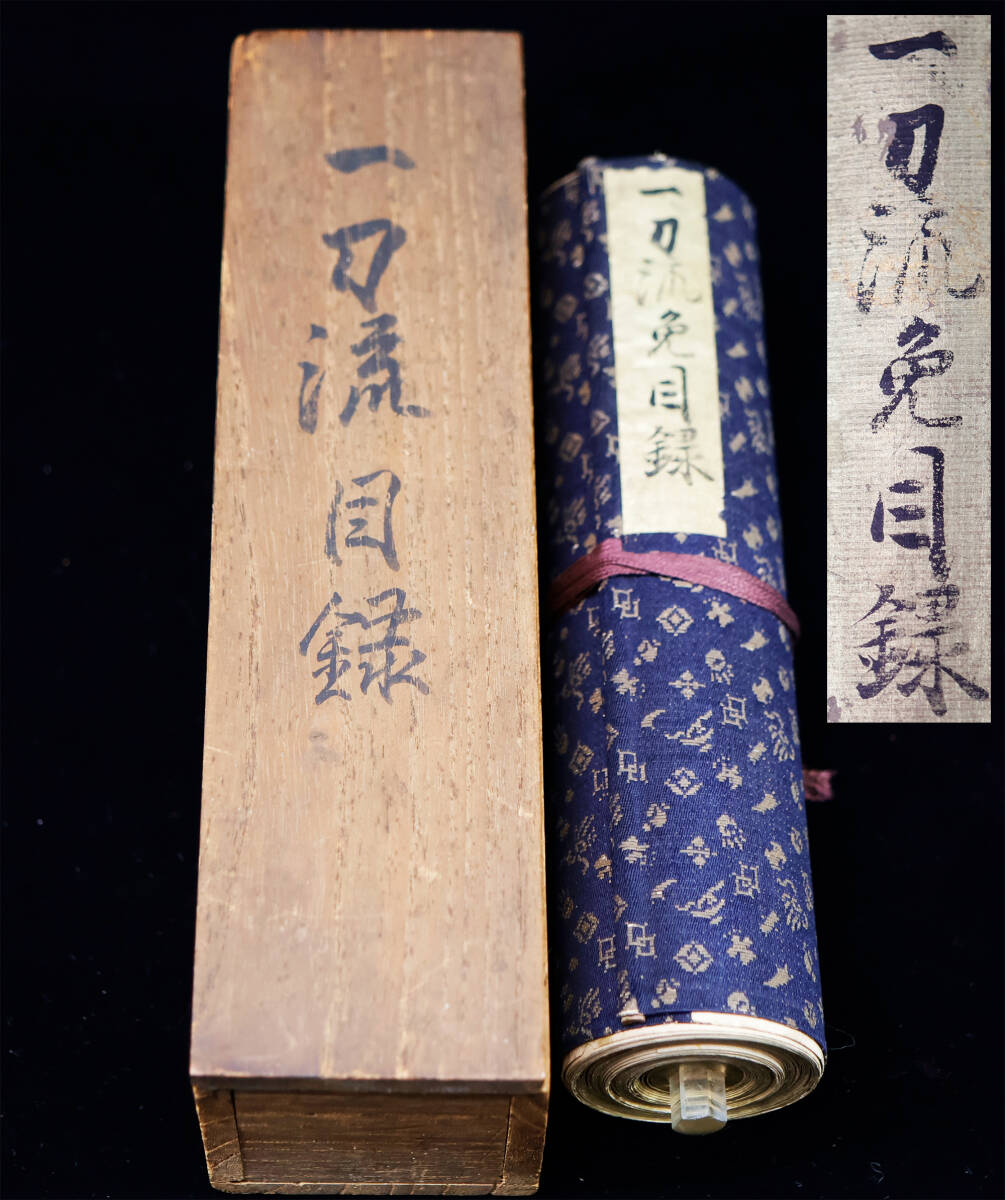 一刀流目録
一刀流免目録
一刀流免目録